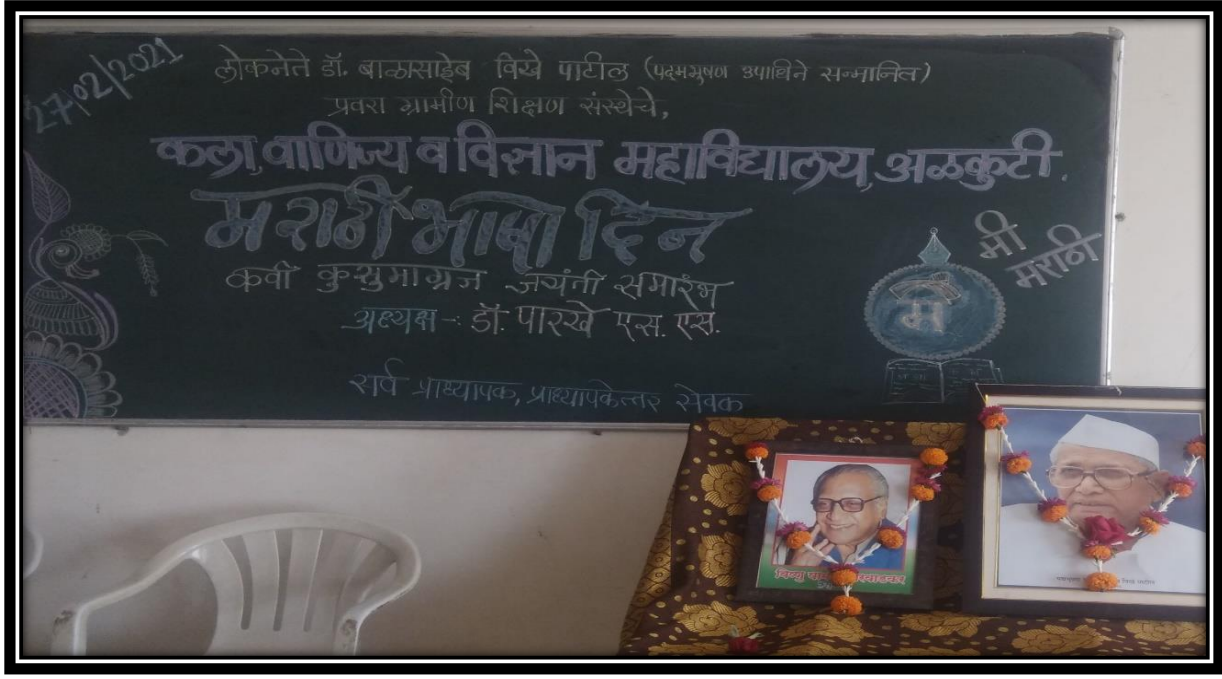 27/02/2021
लोकनेते डॉ. बाळासाहेब विखे पाटील (पद्मभूषण उपाधिने सन्मानित)
प्रवरा ग्रामीण शिक्षण संस्थेचे,
कला, वाणिज्य व विज्ञान महाविद्यालय, अळकुटी.
मराठी भाषा दिन
कवी कुसुमाग्रज जयंती समारंभ
अध्यक्ष -: डॉ. पारखे एस. एस.
सर्व प्राध्यापक, प्राध्यापकेत्तर सेवक
मी
मराठी
म
विष्णु